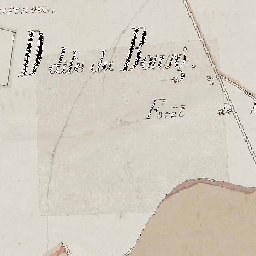 D dite du Bourg.
Forêt de